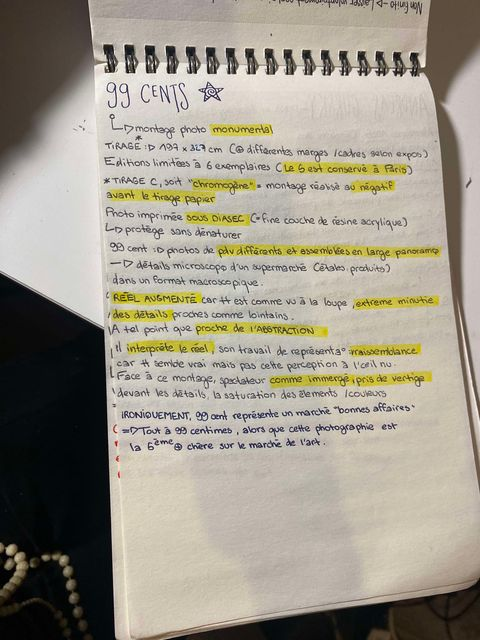 Non finito -▷ Laisser volontairement
99 CENTS ☆
↳▷ montage photo monumental
*
TIRAGE :▷ 197 x 327 cm (⊕ différentes marges / cadres selon expos)
Editions limitées à 6 exemplaires (Le 5 est conservé à Paris)
* TIRAGE C, soit "chromogène" = montage réalisé au négatif
avant le tirage papier
Photo imprimée SOUS DIASEC (= fine couche de résine acrylique)
↳▷ protège sans dénaturer
99 cent :▷ photos de pdv différents et assemblées en large panorama
—▷ détails microscopo d'un supermarché (étales, produits)
dans un format macroscopique.
RÉEL AUGMENTÉ car tt est comme vu à la loupe, extreme minutie
des détails proches comme lointains.
A tel point que proche de l'ABSTRACTION
Il interprète le réel, son travail de représentat° = vraissemblance
car tt semble vrai mais pas cette perception à l'oeil nu.
Face à ce montage, spectateur comme immergé, pris de vertige
devant les détails, la saturation des élements / couleurs
IRONIQUEMENT, 99 cent représente un marché "bonnes affaires"
=▷ Tout à 99 centimes, alors que cette photographie est
la 6ème ⊕ chère sur le marché de l'art.